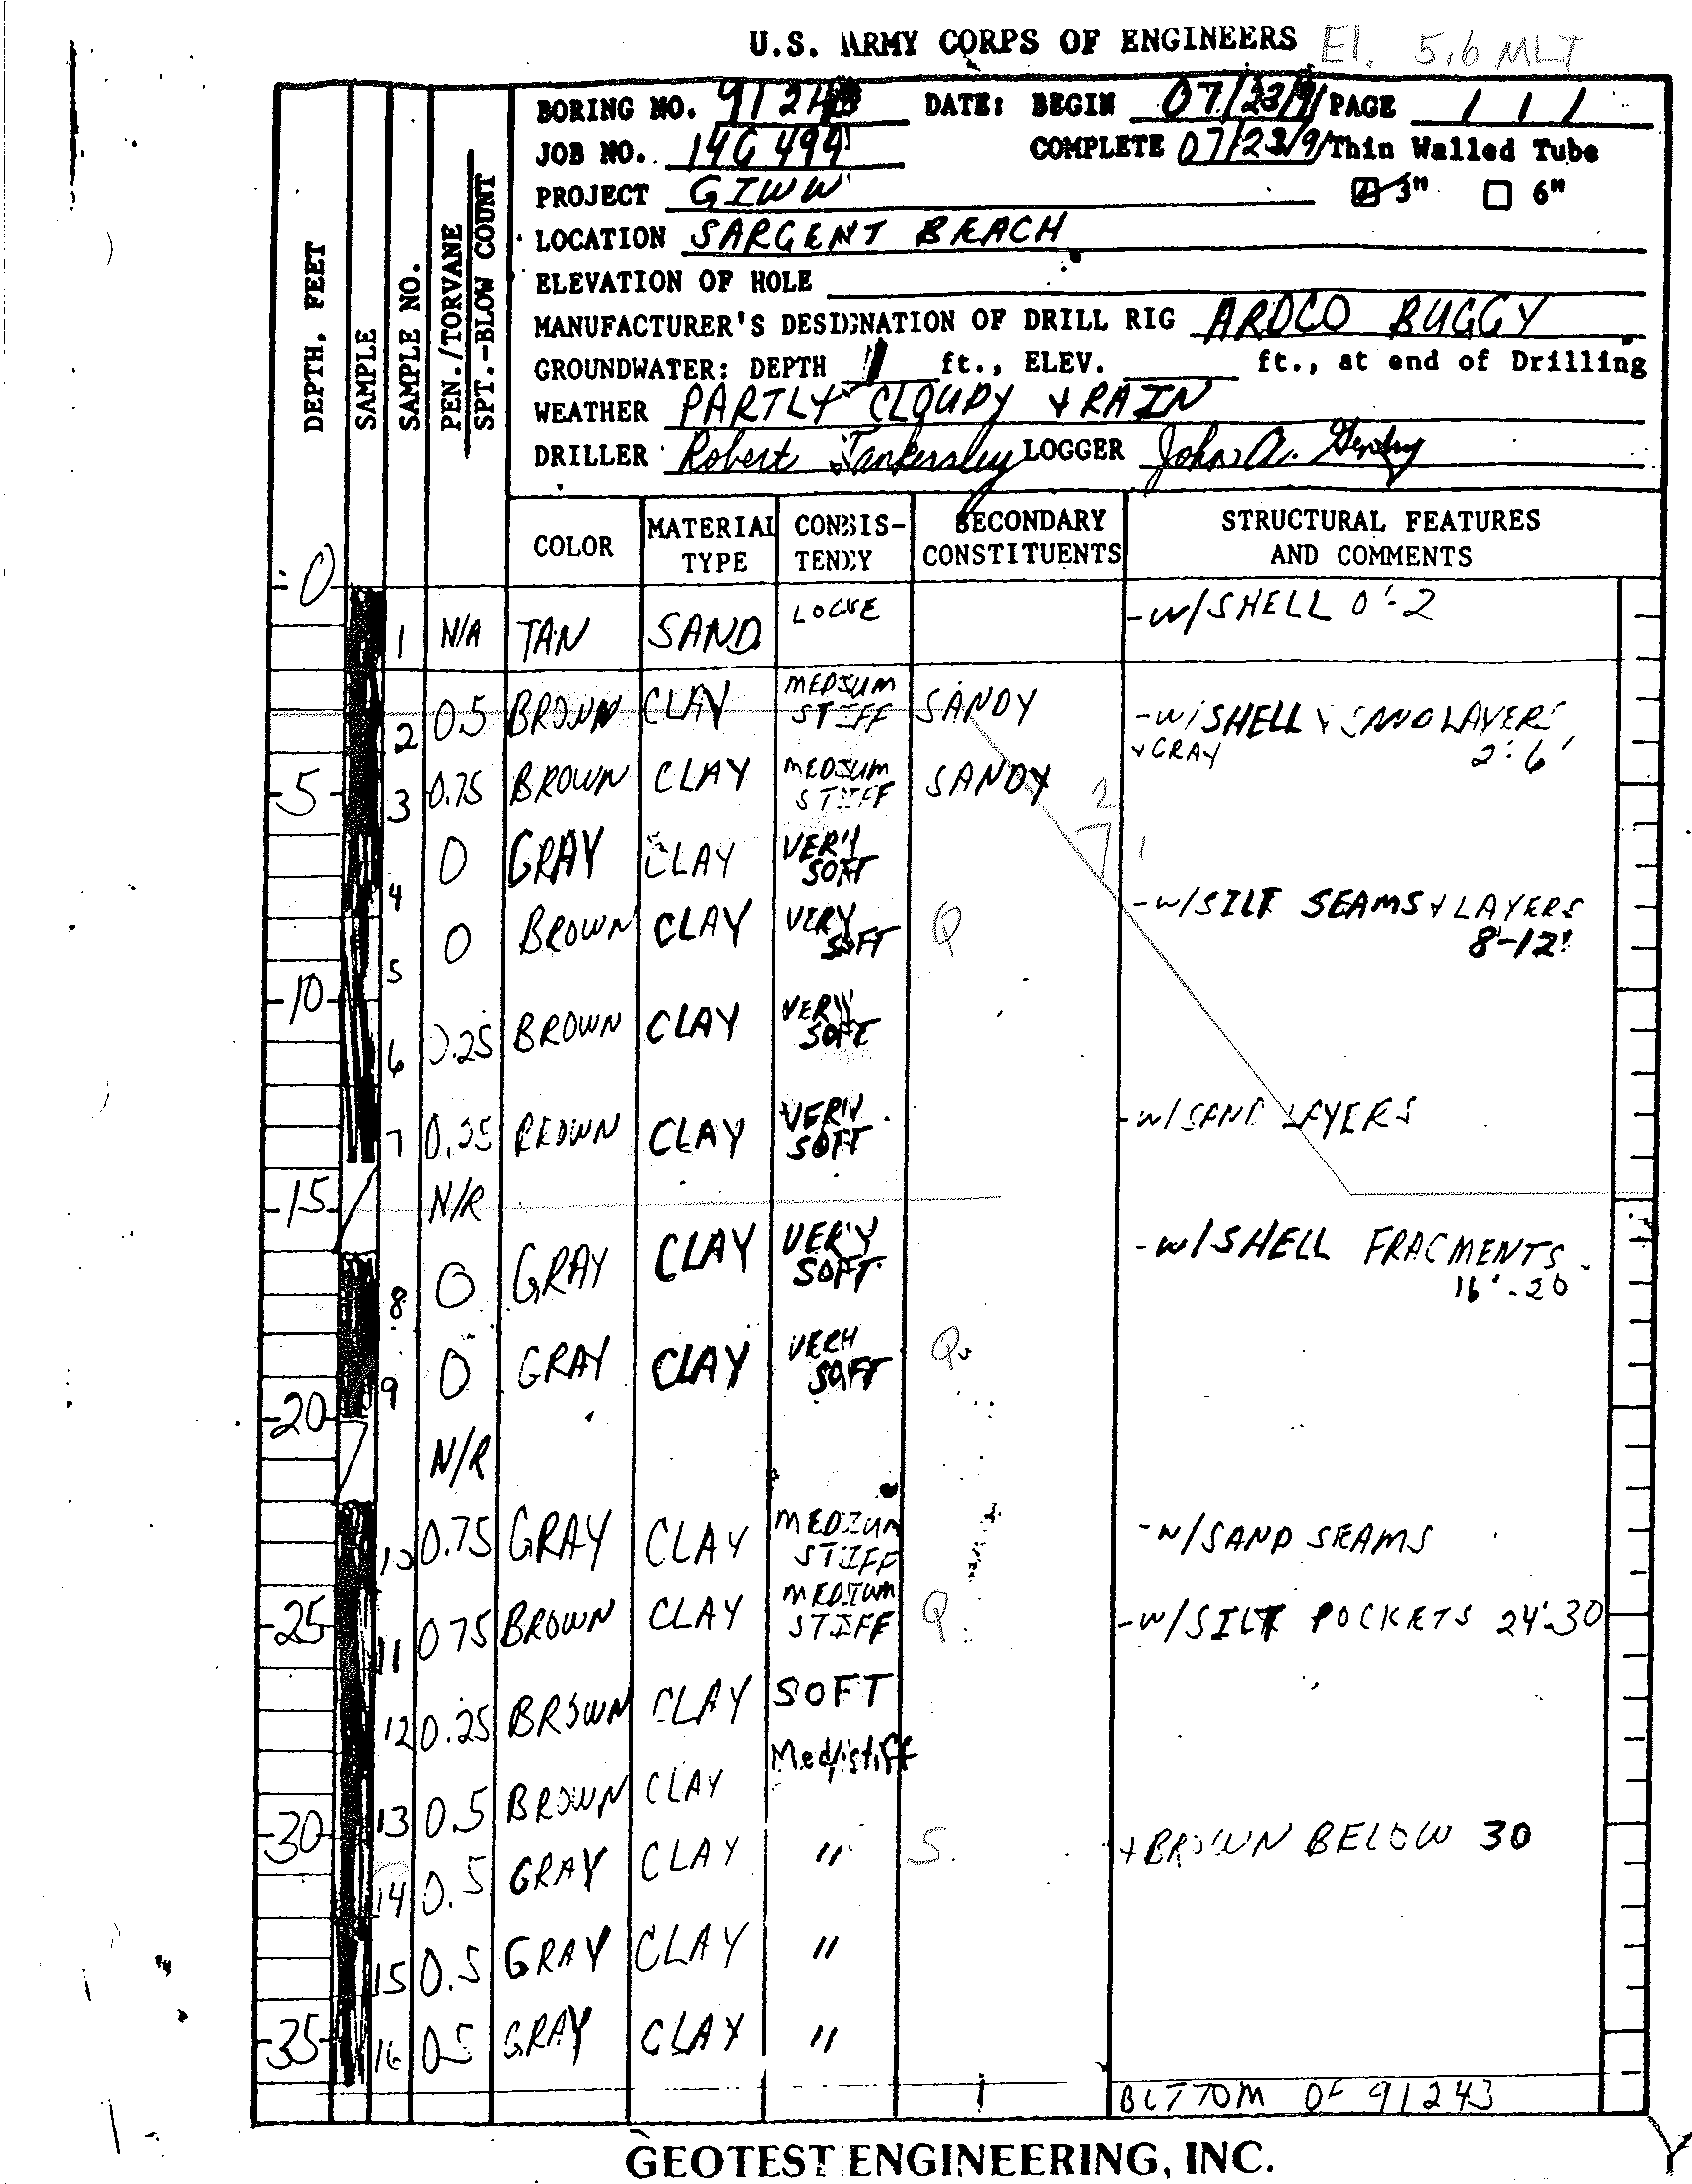 U.S. ARMY CORPS OF ENGINEERS El. 5.6 MLT
BORING NO. DATE: BEGIN 07/23/91 PAGE 1 / 1
JOB NO. 14G 499 COMPLETE 07/23/91 Thin Walled Tube
PROJECT GIWW 3" 6"
LOCATION SARGENT BEACH
ELEVATION OF HOLE
MANUFACTURER'S DESIGNATION OF DRILL RIG ARDCO BUGGY
GROUNDWATER: DEPTH ft., ELEV. ft., at end of Drilling
WEATHER PARTLY CLOUDY & RAIN
DRILLER Robert Tankersley LOGGER John A.
DEPTH, FEET
SAMPLE
SAMPLE NO.
PEN./TORVANE
SPT.-BLOW COUNT
COLOR MATERIAL TYPE CONSISTENCY SECONDARY CONSTITUENTS STRUCTURAL FEATURES AND COMMENTS
0
1 N/A TAN SAND LOOSE -W/SHELL 0'-2
2 0.5 BROWN CLAY MEDIUM STIFF SANDY -W/SHELL & SAND LAYERS
& GRAY 2'-6'
5 3 0.75 BROWN CLAY MEDIUM STIFF SANDY
4 0 GRAY CLAY VERY SOFT
5 0 BROWN CLAY VERY SOFT Q -W/SILT SEAMS & LAYERS
8'-12'
10
6 0.25 BROWN CLAY VERY SOFT
7 0.25 BROWN CLAY VERY SOFT -W/SAND LAYERS
15 N/R
8 0 GRAY CLAY VERY SOFT -W/SHELL FRAGMENTS
16'-20
9 0 GRAY CLAY VERY SOFT Q
20
N/R
10 0.75 GRAY CLAY MEDIUM STIFF -W/SAND SEAMS
25 11 075 BROWN CLAY MEDIUM STIFF Q -W/SILT POCKETS 24'-30
12 0.25 BROWN CLAY SOFT
13 0.5 BROWN CLAY Med/stiff
30
14 0.5 GRAY CLAY " S. & BROWN BELOW 30
15 0.5 GRAY CLAY "
35 16 0.5 GRAY CLAY "
BOTTOM OF 91243
GEOTEST ENGINEERING, INC.